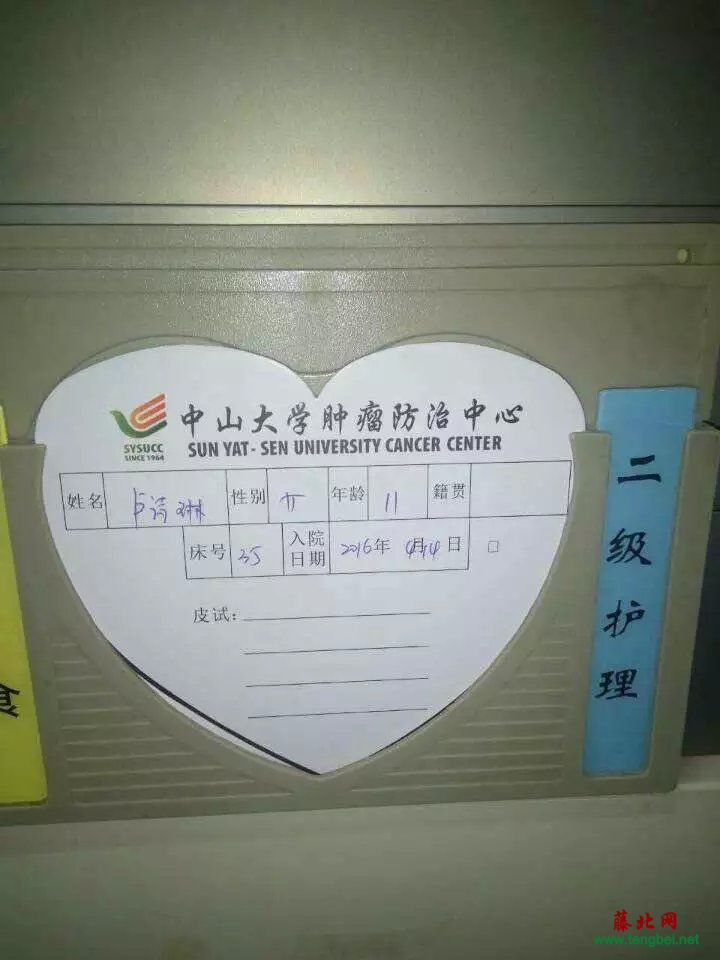 中山大学肿瘤防治中心
SYSUCC
SINCE 1964
SUN YAT-SEN UNIVERSITY CANCER CENTER
姓名 卢诗琳 性别 女 年龄 11 籍贯
床号 35 入院日期 2016年 4月14日 □
皮试：
二级护理
食
藤北网
www.tengbei.net